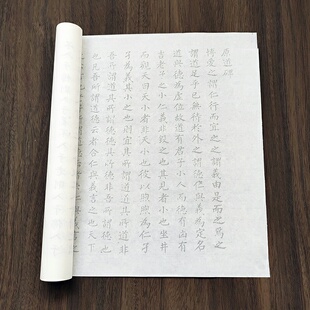 原道碑
博愛之謂仁行而宜之之謂義由是而之焉之
謂道足乎己無待於外之謂德仁與義為定名
道與德為虛位故道有君子小人而德有凶有
吉老子之小仁義非毀之也其見者小也坐井
而觀天曰天小者非天小也彼以煦煦為仁孑
孑為義其小之也則宜其所謂道道其所道非
吾所謂道也其所謂德德其所德非吾所謂德
也凡吾所謂道德云者合仁與義言之也天下